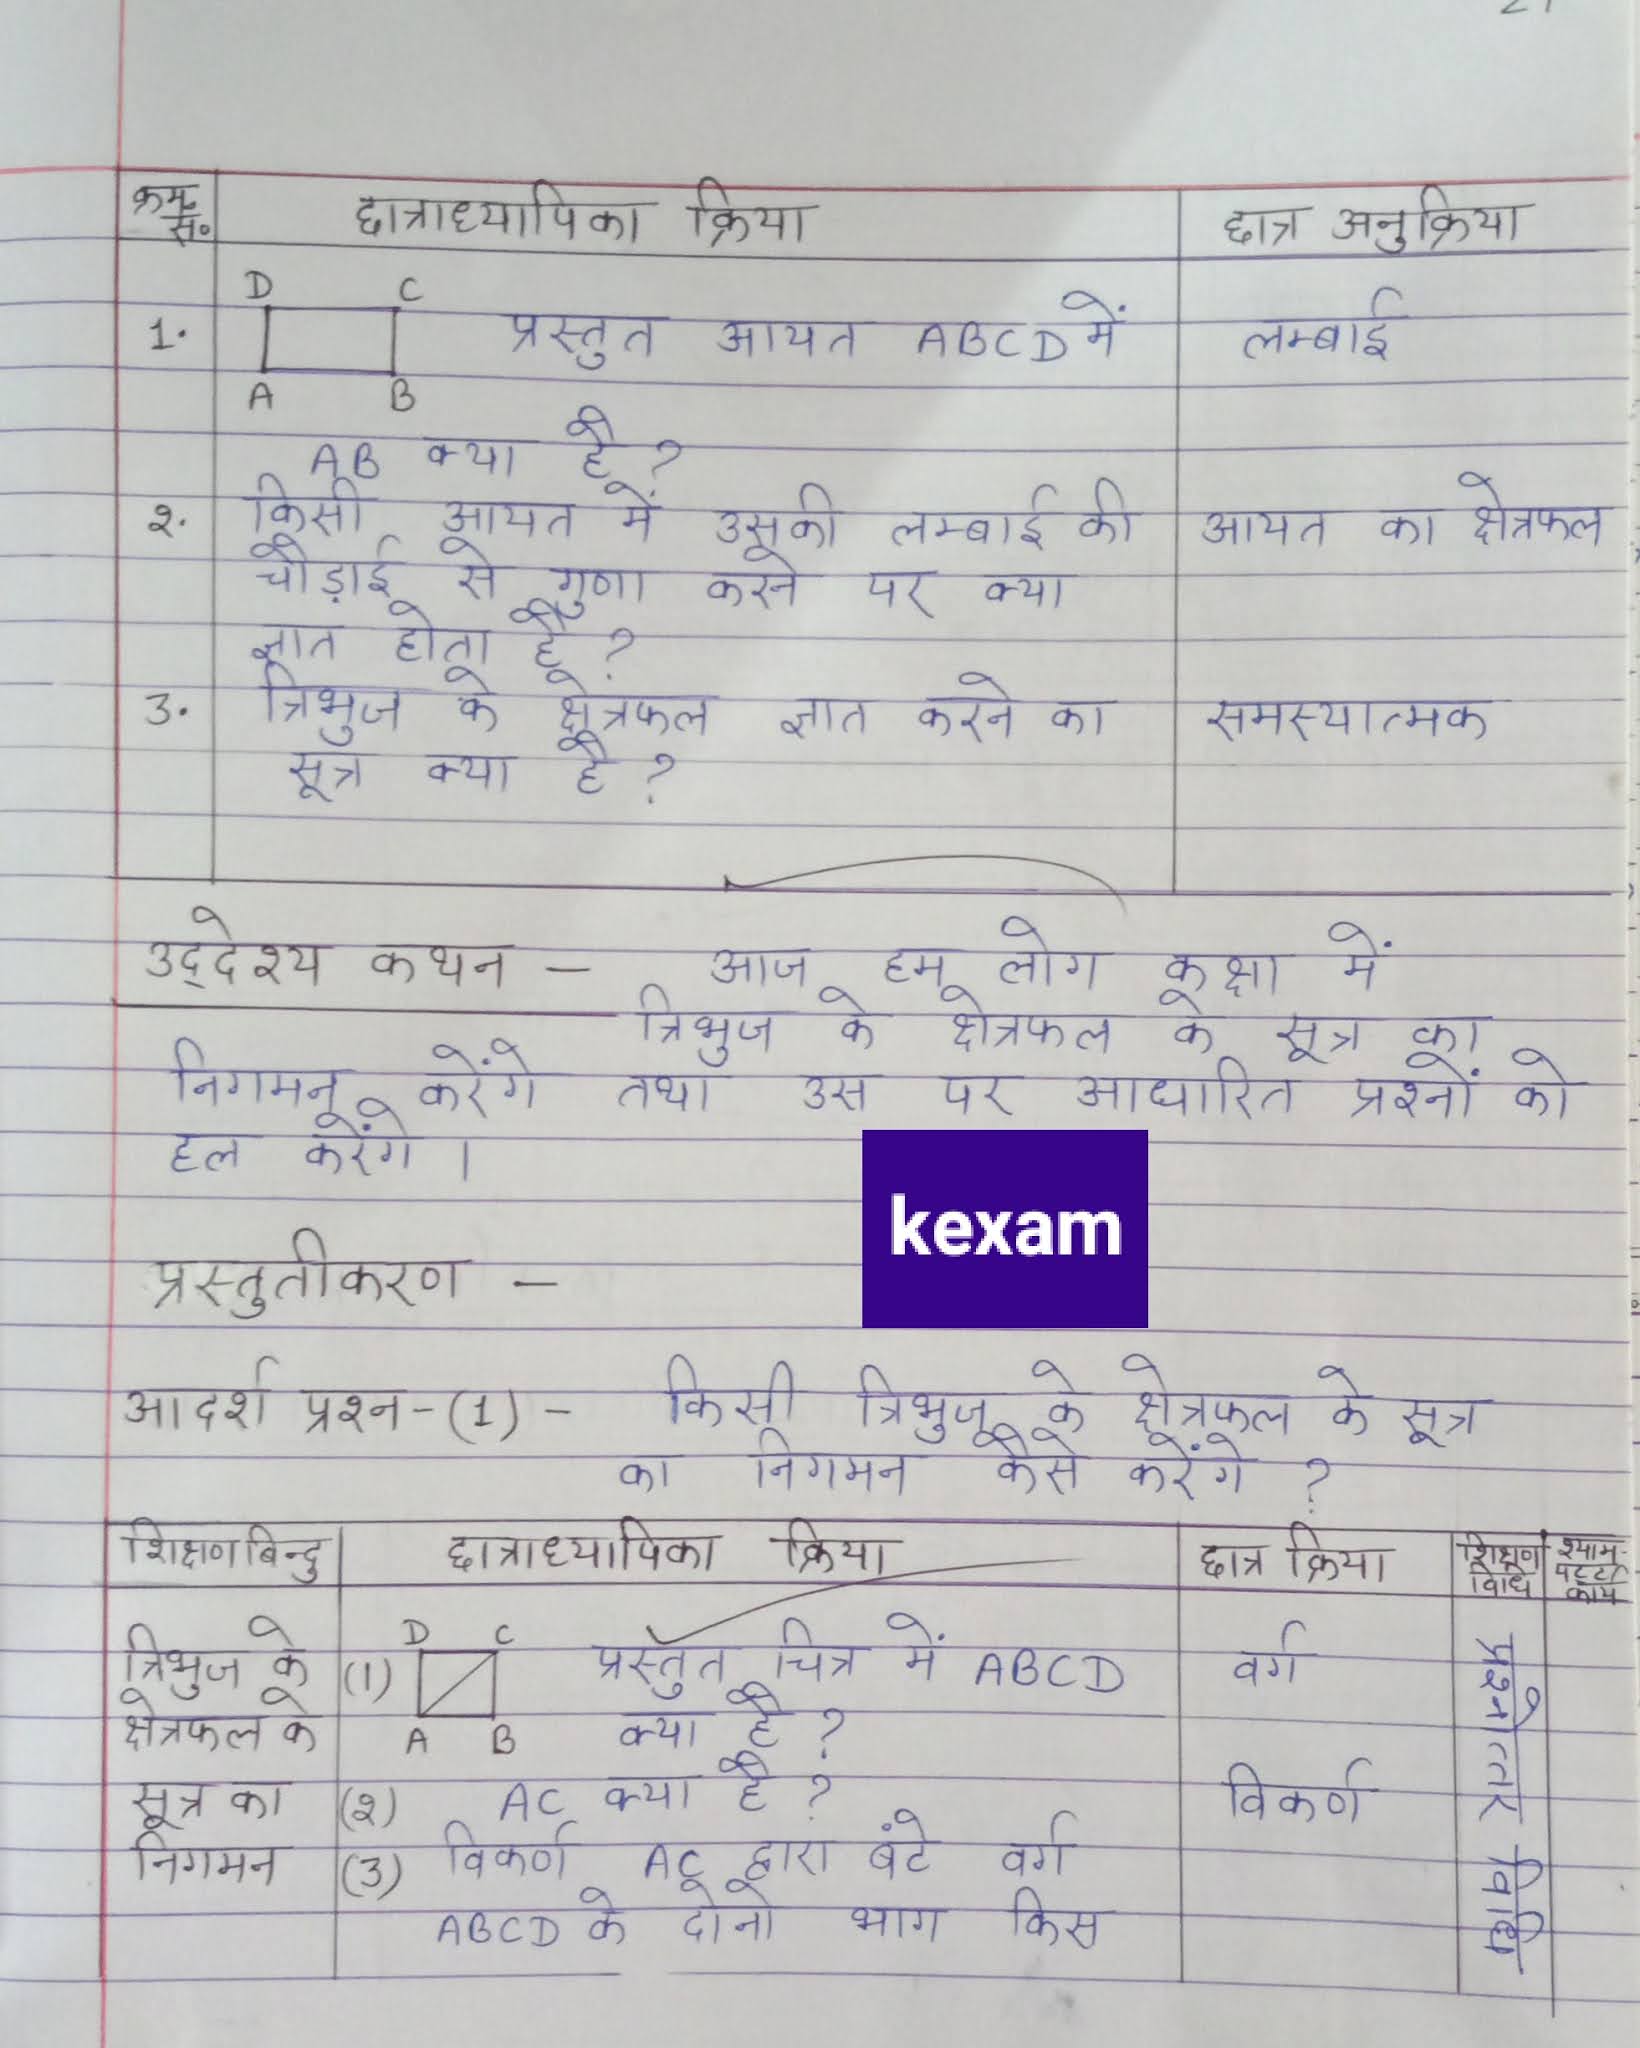 क्रम. सं.
छात्राध्यापिका क्रिया
छात्र अनुक्रिया
D C
1. प्रस्तुत आयत ABCD में लम्बाई
A B
AB क्या है ?
२. किसी आयत में उसकी लम्बाई की आयत का क्षेत्रफल
चौड़ाई से गुणा करने पर क्या
ज्ञात होता है ?
3. त्रिभुज के क्षेत्रफल ज्ञात करने का समस्यात्मक
सूत्र क्या है ?
उद्देश्य कथन – आज हम लोग कक्षा में
त्रिभुज के क्षेत्रफल के सूत्र का
निगमन करेंगे तथा उस पर आधारित प्रश्नों को
हल करेंगे ।
kexam
प्रस्तुतीकरण –
आदर्श प्रश्न-(1) – किसी त्रिभुज के क्षेत्रफल के सूत्र
का निगमन कैसे करेंगे ?
शिक्षण बिन्दु छात्राध्यापिका क्रिया छात्र क्रिया शिक्षण विधि श्याम-पट्ट कार्य
D C
त्रिभुज के (1) प्रस्तुत चित्र में ABCD वर्ग
क्षेत्रफल के A B क्या है ?
सूत्र का (२) AC क्या है ? विकर्ण
निगमन (3) विकर्ण AC द्वारा बंटे वर्ग
ABCD के दोनो भाग किस
प्रश्नोत्तर विधि